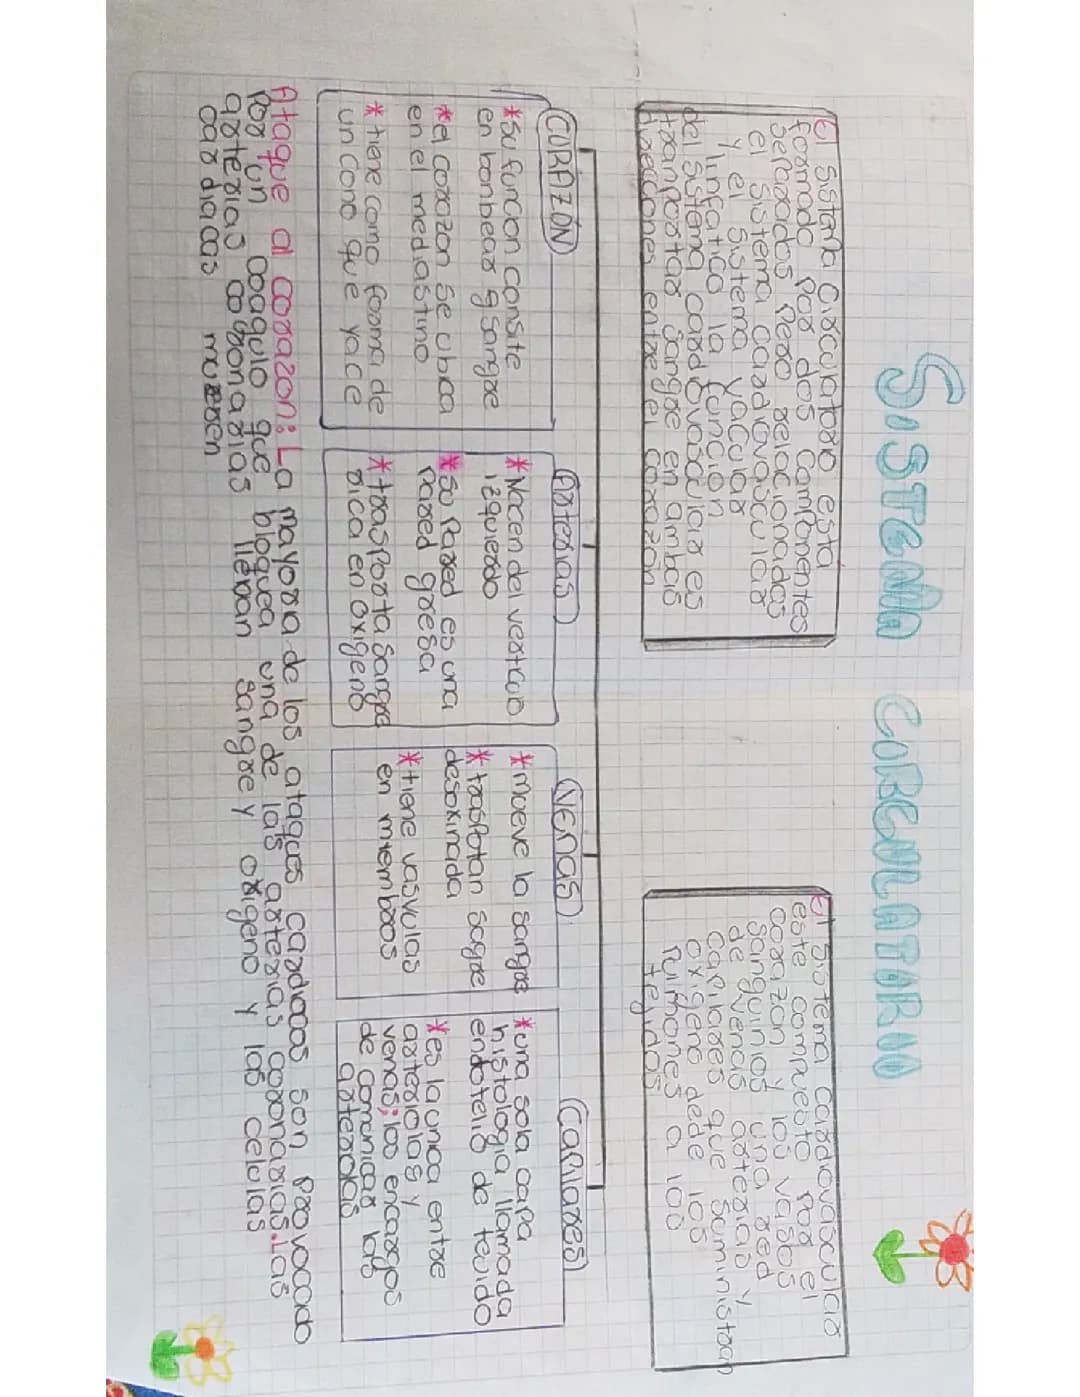 SISTEMA CIRCULATORIO
El sistema circulatorio esta
formado por dos componentes
serbados pero relacionadas
el sistema cardiovascular
y el sistema vacular
y linfatico la funcion
del sistema cardiovascular es
tranportar sangre en ambas
direcciones entre el corazón
El sistema cardiovascular
este compuesto por el
corazon y los vasos
sanguinios una red
de venas arterias y
capilares que suministran
oxigeno dede los
pulmones a los
tejidos
CORAZÓN
* Su funcion consiste
en bonbear q sangre
* el corazon se ubica
en el mediastino
* tiene como forma de
un cono que yace
Arterias
* Nacen del vextricuo
izquierdo
* Su Pared es una
Pared gresa
* trasporta sangre
rica en oxigeno
VENAS
* mueve la sangre
* trasfotan sagre
desoxinada
* tiene vasvulas
en miembros
Capilares
* una sola capa
histologia llamada
endotelio de tejido
* es la unca entre
arteriolas y
venas; los encargos
de comunicar las
arteriolas
Ataque al corazon: La mayora de los ataques cardiacos son provocado
por un coagulo que bloquea una de las arterias coronarias. Las
arterias coronarias llevan sangre y oxigeno y las celulas
cardiacas mueren